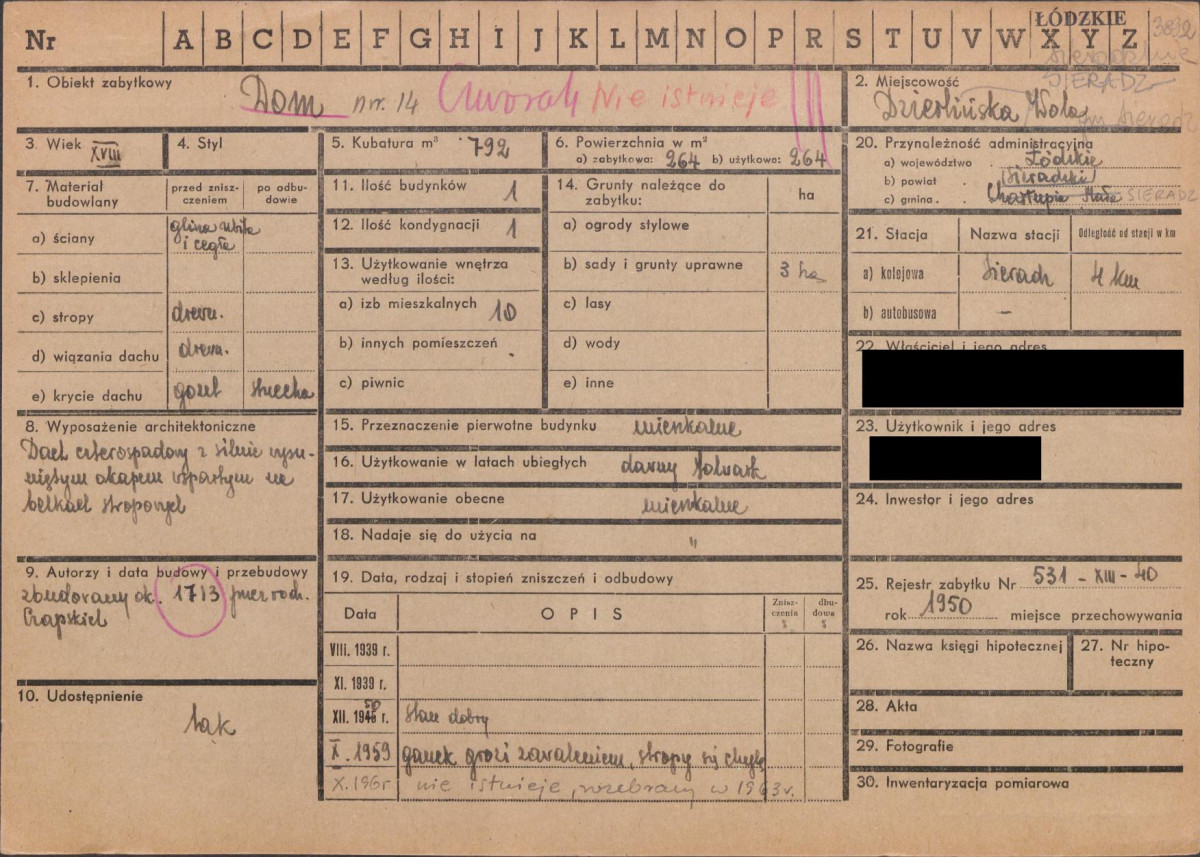 Nr A B C D E F G H I J K L M N O P R S T U V W X Y Z
ŁÓDZKIE
3832
sieradzkie
SIERADZ
1. Obiekt zabytkowy
Dom nr. 14 Dworek Nie istnieje
2. Miejscowość
Dzierlińska Wola
gm Sieradz
3. Wiek XVIII
4. Styl
5. Kubatura m³ 792
6. Powierzchnia w m²
a) zabytkowa: 264 b) użytkowa: 264
7. Materiał budowlany
przed zniszczeniem
po odbudowie
a) ściany glina ubita i cegła
b) sklepienia
c) stropy drewn.
d) wiązania dachu drewn.
e) krycie dachu gont strzecha
8. Wyposażenie architektoniczne
Dach czterospadowy z silnie wysu-
niętym okapem wspartym na
belkach stropowych
9. Autorzy i data budowy i przebudowy
zbudowany ok. 1713 przez rodz.
Czapskich
10. Udostępnienie
tak
11. Ilość budynków 1
12. Ilość kondygnacji 1
13. Użytkowanie wnętrza
według ilości:
a) izb mieszkalnych 10
b) innych pomieszczeń
c) piwnic
14. Grunty należące do
zabytku:
ha
a) ogrody stylowe
b) sady i grunty uprawne 3 ha
c) lasy
d) wody
e) inne
15. Przeznaczenie pierwotne budynku mieszkalne
16. Użytkowanie w latach ubiegłych dawny folwark
17. Użytkowanie obecne mieszkalne
18. Nadaje się do użycia na "
19. Data, rodzaj i stopień zniszczeń i odbudowy
Data OPIS Znisz-czenia % dbu-dowa %
VIII. 1939 r.
XI. 1939 r.
XII. 1945 r. 50 stan dobry
X. 1959 ganek grozi zawaleniem, stropy się chylą
X. 196 r nie istnieje, rozebrany w 1963 r.
20. Przynależność administracyjna
a) województwo Łódzkie
b) powiat (Sieradzki)
c) gmina Charłupia Mała SIERADZ
21. Stacja Nazwa stacji Odległość od stacji w km
a) kolejowa Sieradz 4 km
b) autobusowa –
22. Właściciel i jego adres
23. Użytkownik i jego adres
24. Inwestor i jego adres
25. Rejestr zabytku Nr 531 - XIII - 40
rok 1950 miejsce przechowywania
26. Nazwa księgi hipotecznej
27. Nr hipo-
teczny
28. Akta
29. Fotografie
30. Inwentaryzacja pomiarowa